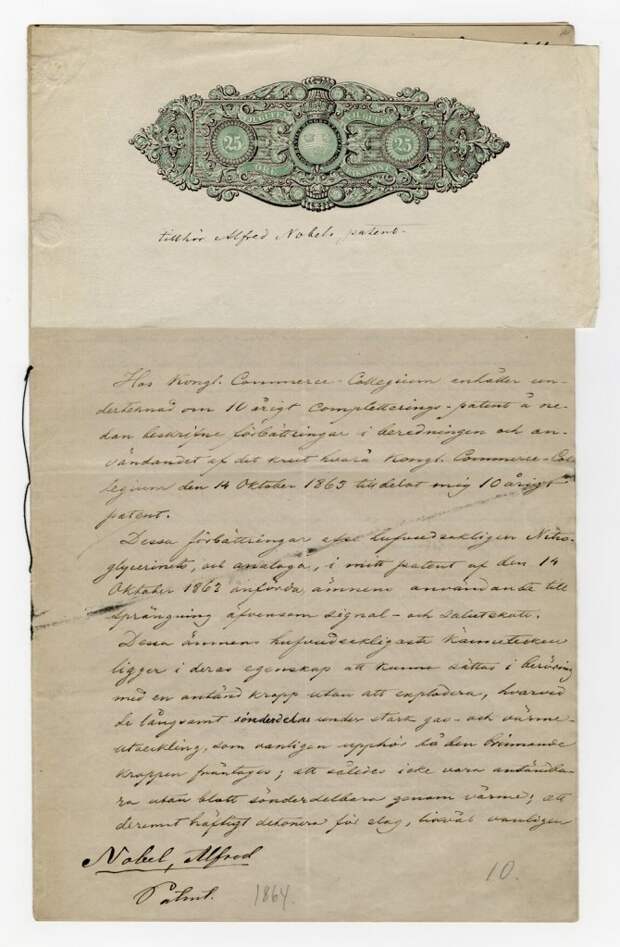 25 25
tillhör Alfred Nobels patent.
Hos Kongl. Commerce-Collegium anhåller un-
dertecknad om 10 årigt completterings-patent å ne-
dan beskrifne förbättringar i beredningen och an-
vändandet af det krut hvarå Kongl. Commerce-Col-
legium den 14 Oktober 1863 tilldelat mig 10 årigt
patent.
Dessa förbättringar afse hufvudsakligen Nitro-
glycerinets, och analoga, i mitt patent af den 14
Oktober 1863 anförda, ämnens användande till
sprängning äfvensom signal- och salutskott.
Dessa ämnens hufvudsakligaste kännetecken
ligger i deras egenskap att kunna sättas i beröring
med en antänd kropp utan att explodera, hvarvid
de långsamt sönderdelas under stark gas- och värme-
utveckling, som vanligen upphör då den brinnande
kroppen fråntages; att således icke vara antändba-
ra utan blott sönderdelbara genom värme; att
deremot häftigt detonera för slag, likväl vanligen
Nobel, Alfred
Patent.
1864.
10.